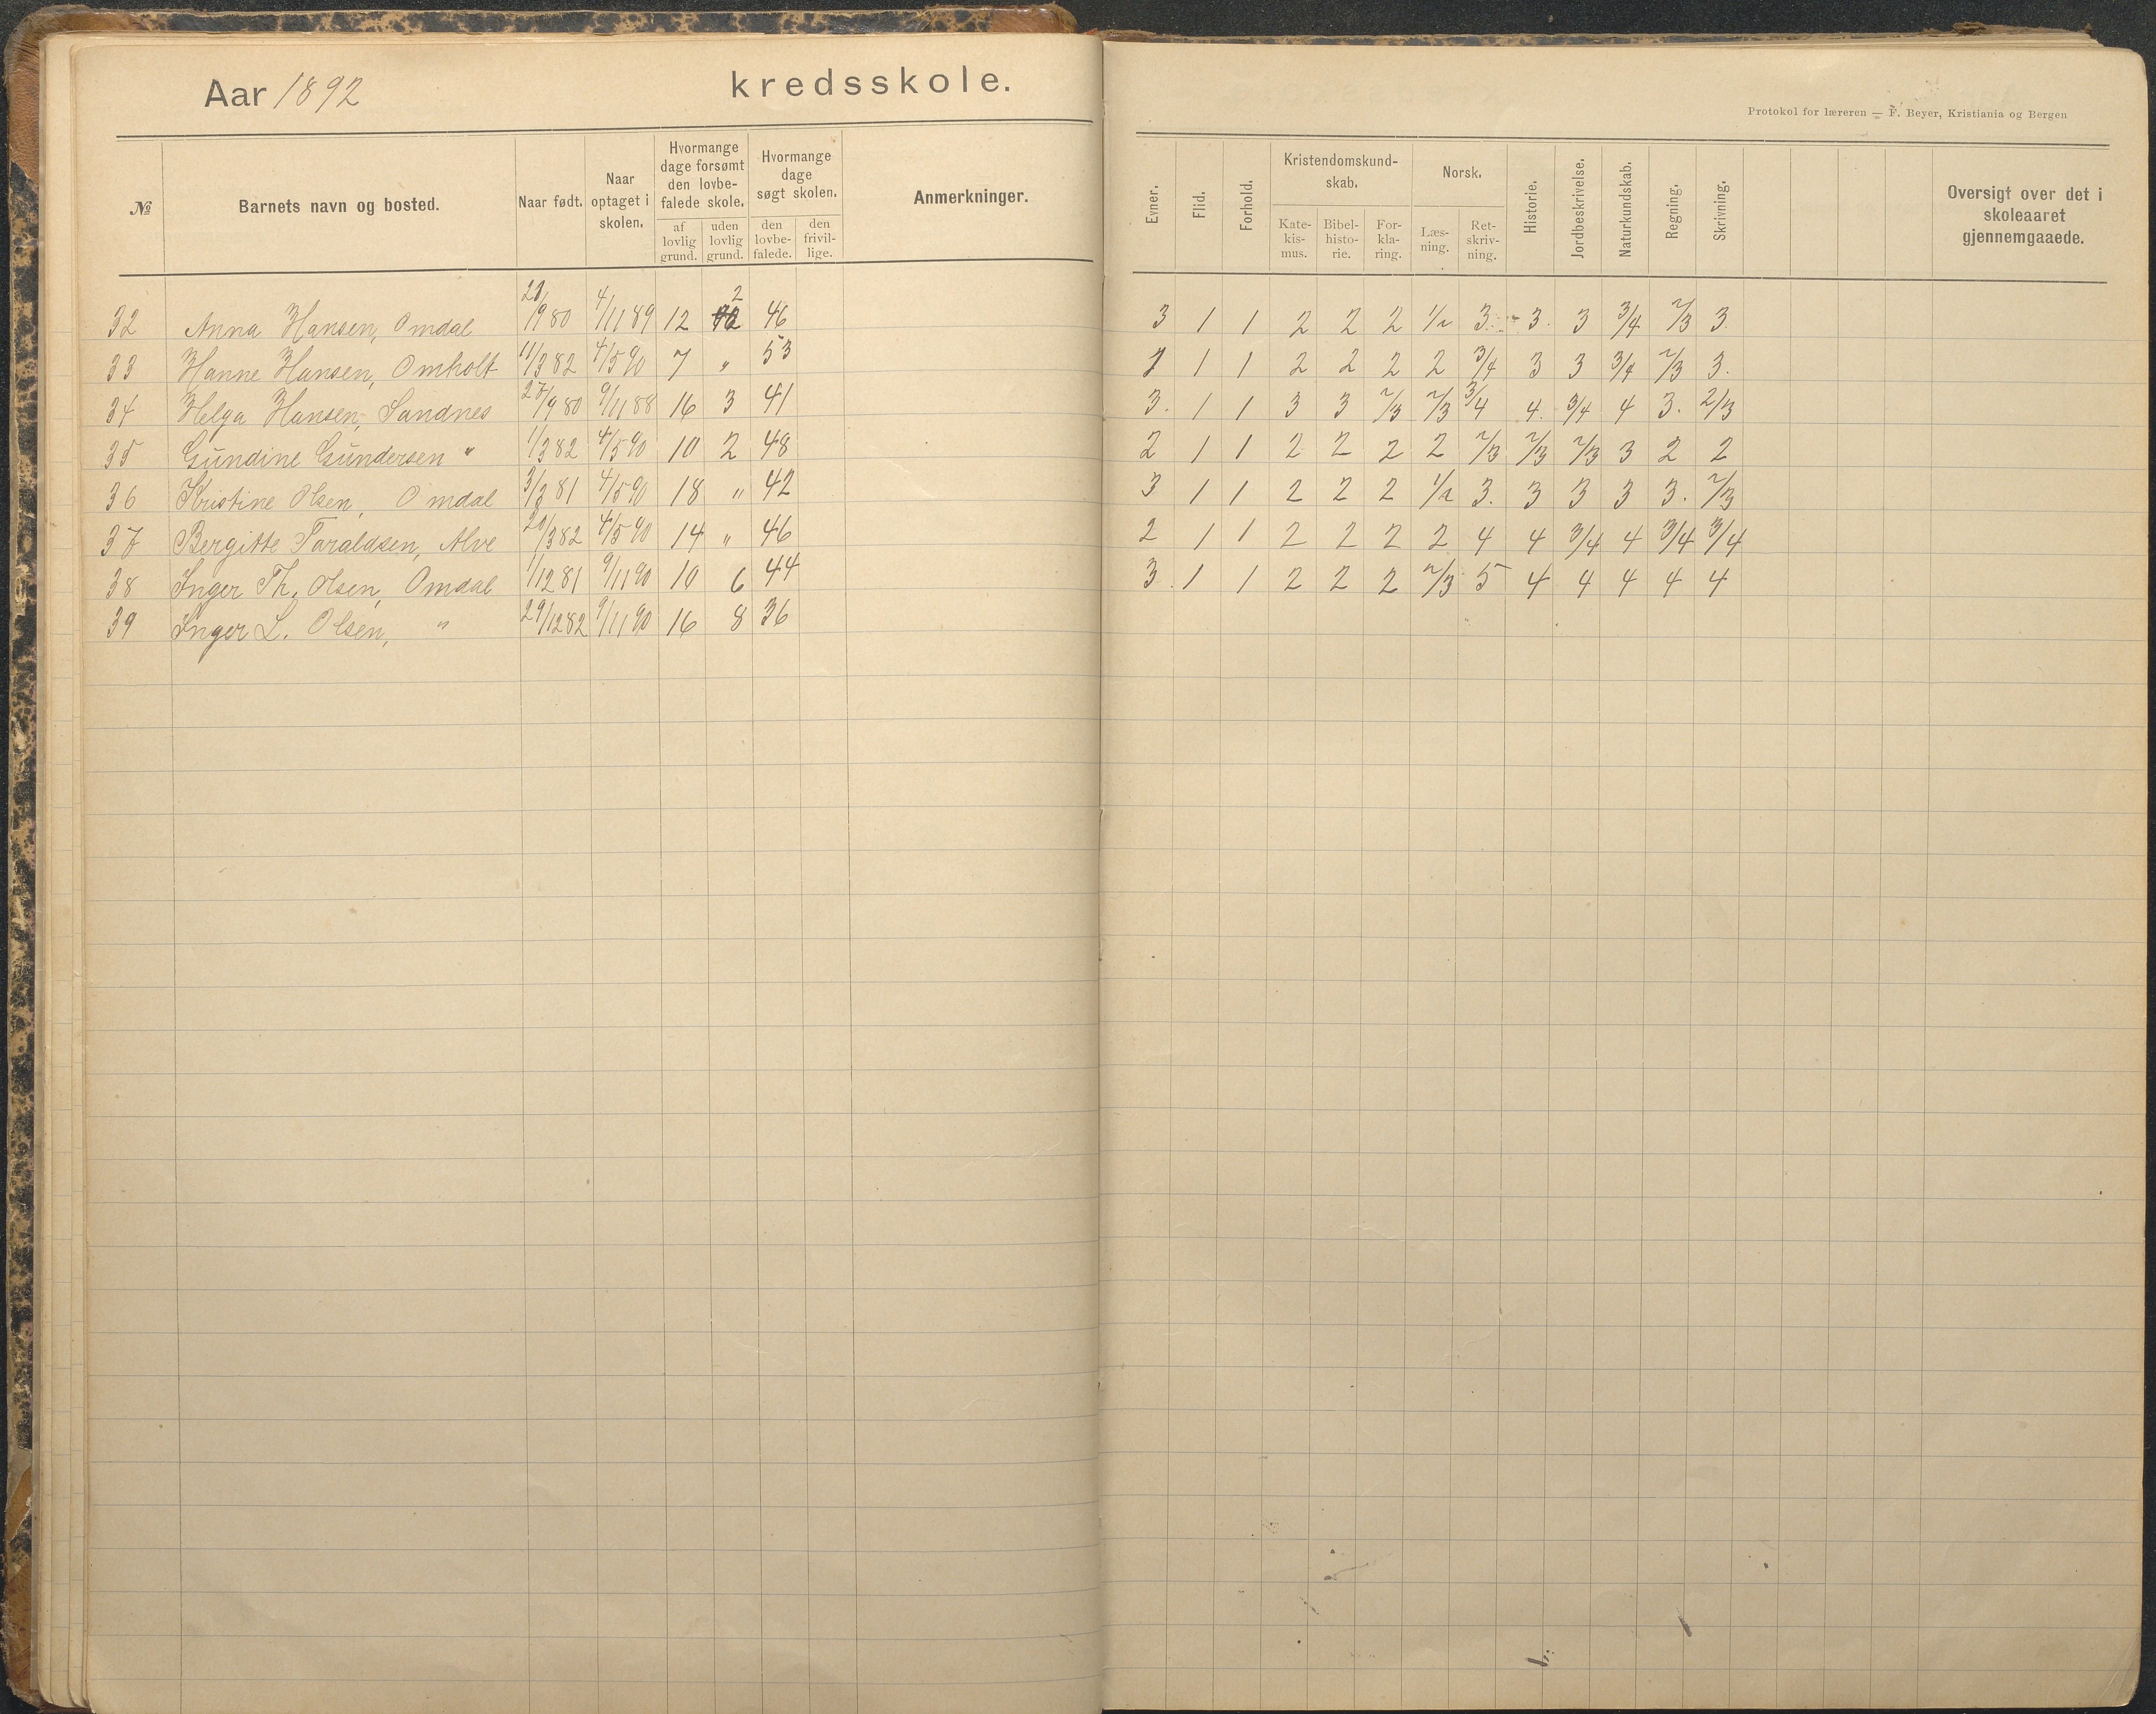 Aar 1892 kredsskole.
Protokol for læreren — F. Beyer, Kristiania og Bergen
№ Barnets navn og bosted. Naar født. Naar optaget i skolen. Hvormange dage forsømt den lovbefalede skole. af lovlig grund. uden lovlig grund. Hvormange dage søgt skolen. den lovbefalede. den frivillige. Anmerkninger.
Evner. Flid. Forhold. Kristendomskundskab. Katekismus. Bibelhistorie. Forklaring. Norsk. Læsning. Retskrivning. Historie. Jordbeskrivelse. Naturkundskab. Regning. Skrivning. Oversigt over det i skoleaaret gjennemgaaede.
32 Anna Hansen, Omdal 21/9 80 4/11 89 12 2 46 3 1 1 2 2 2 1/2 3 3. 3 3/4 2/3 3.
33 Hanne Hansen, Omholt 11/3 82 4/5 90 7 " 53 1 1 2 2 2 2 3/4 3 3 3/4 2/3 3.
34 Helga Hansen, Sandnes 27/9 80 9/11 88 16 3 41 3. 1 1 3 3 2/3 2/3 3/4 4. 3/4 4 3. 2/3
35 Gundine Gundersen " 1/3 82 4/5 90 10 2 48 2 1 1 2 2 2 2 2/3 2/3 2/3 3 2 2
36 Kristine Olsen, Omdal 3/3 81 4/5 90 18 " 42 3 1 1 2 2 2 1/2 3. 3 3 3 3. 2/3
37 Bergitte Taraldsen, Alve 20/3 82 4/5 90 14 " 46 2 1 1 2 2 2 2 4 4 3/4 4 3/4 3/4
38 Inger Th. Olsen, Omdal 1/12 81 9/11 90 10 6 44 3. 1 1 2 2 2 2/3 5 4 4 4 4 4
39 Inger L. Olsen, " 29/12 82 9/11 90 16 8 36